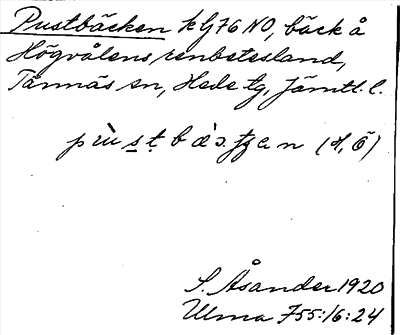 Pustbäcken kG76 NO, bäck å
Högvålens renbetesland,
Tännäs sn, Hede tg, Jämtl. l.
S. Åsander 1920
Ulma 755:16:24